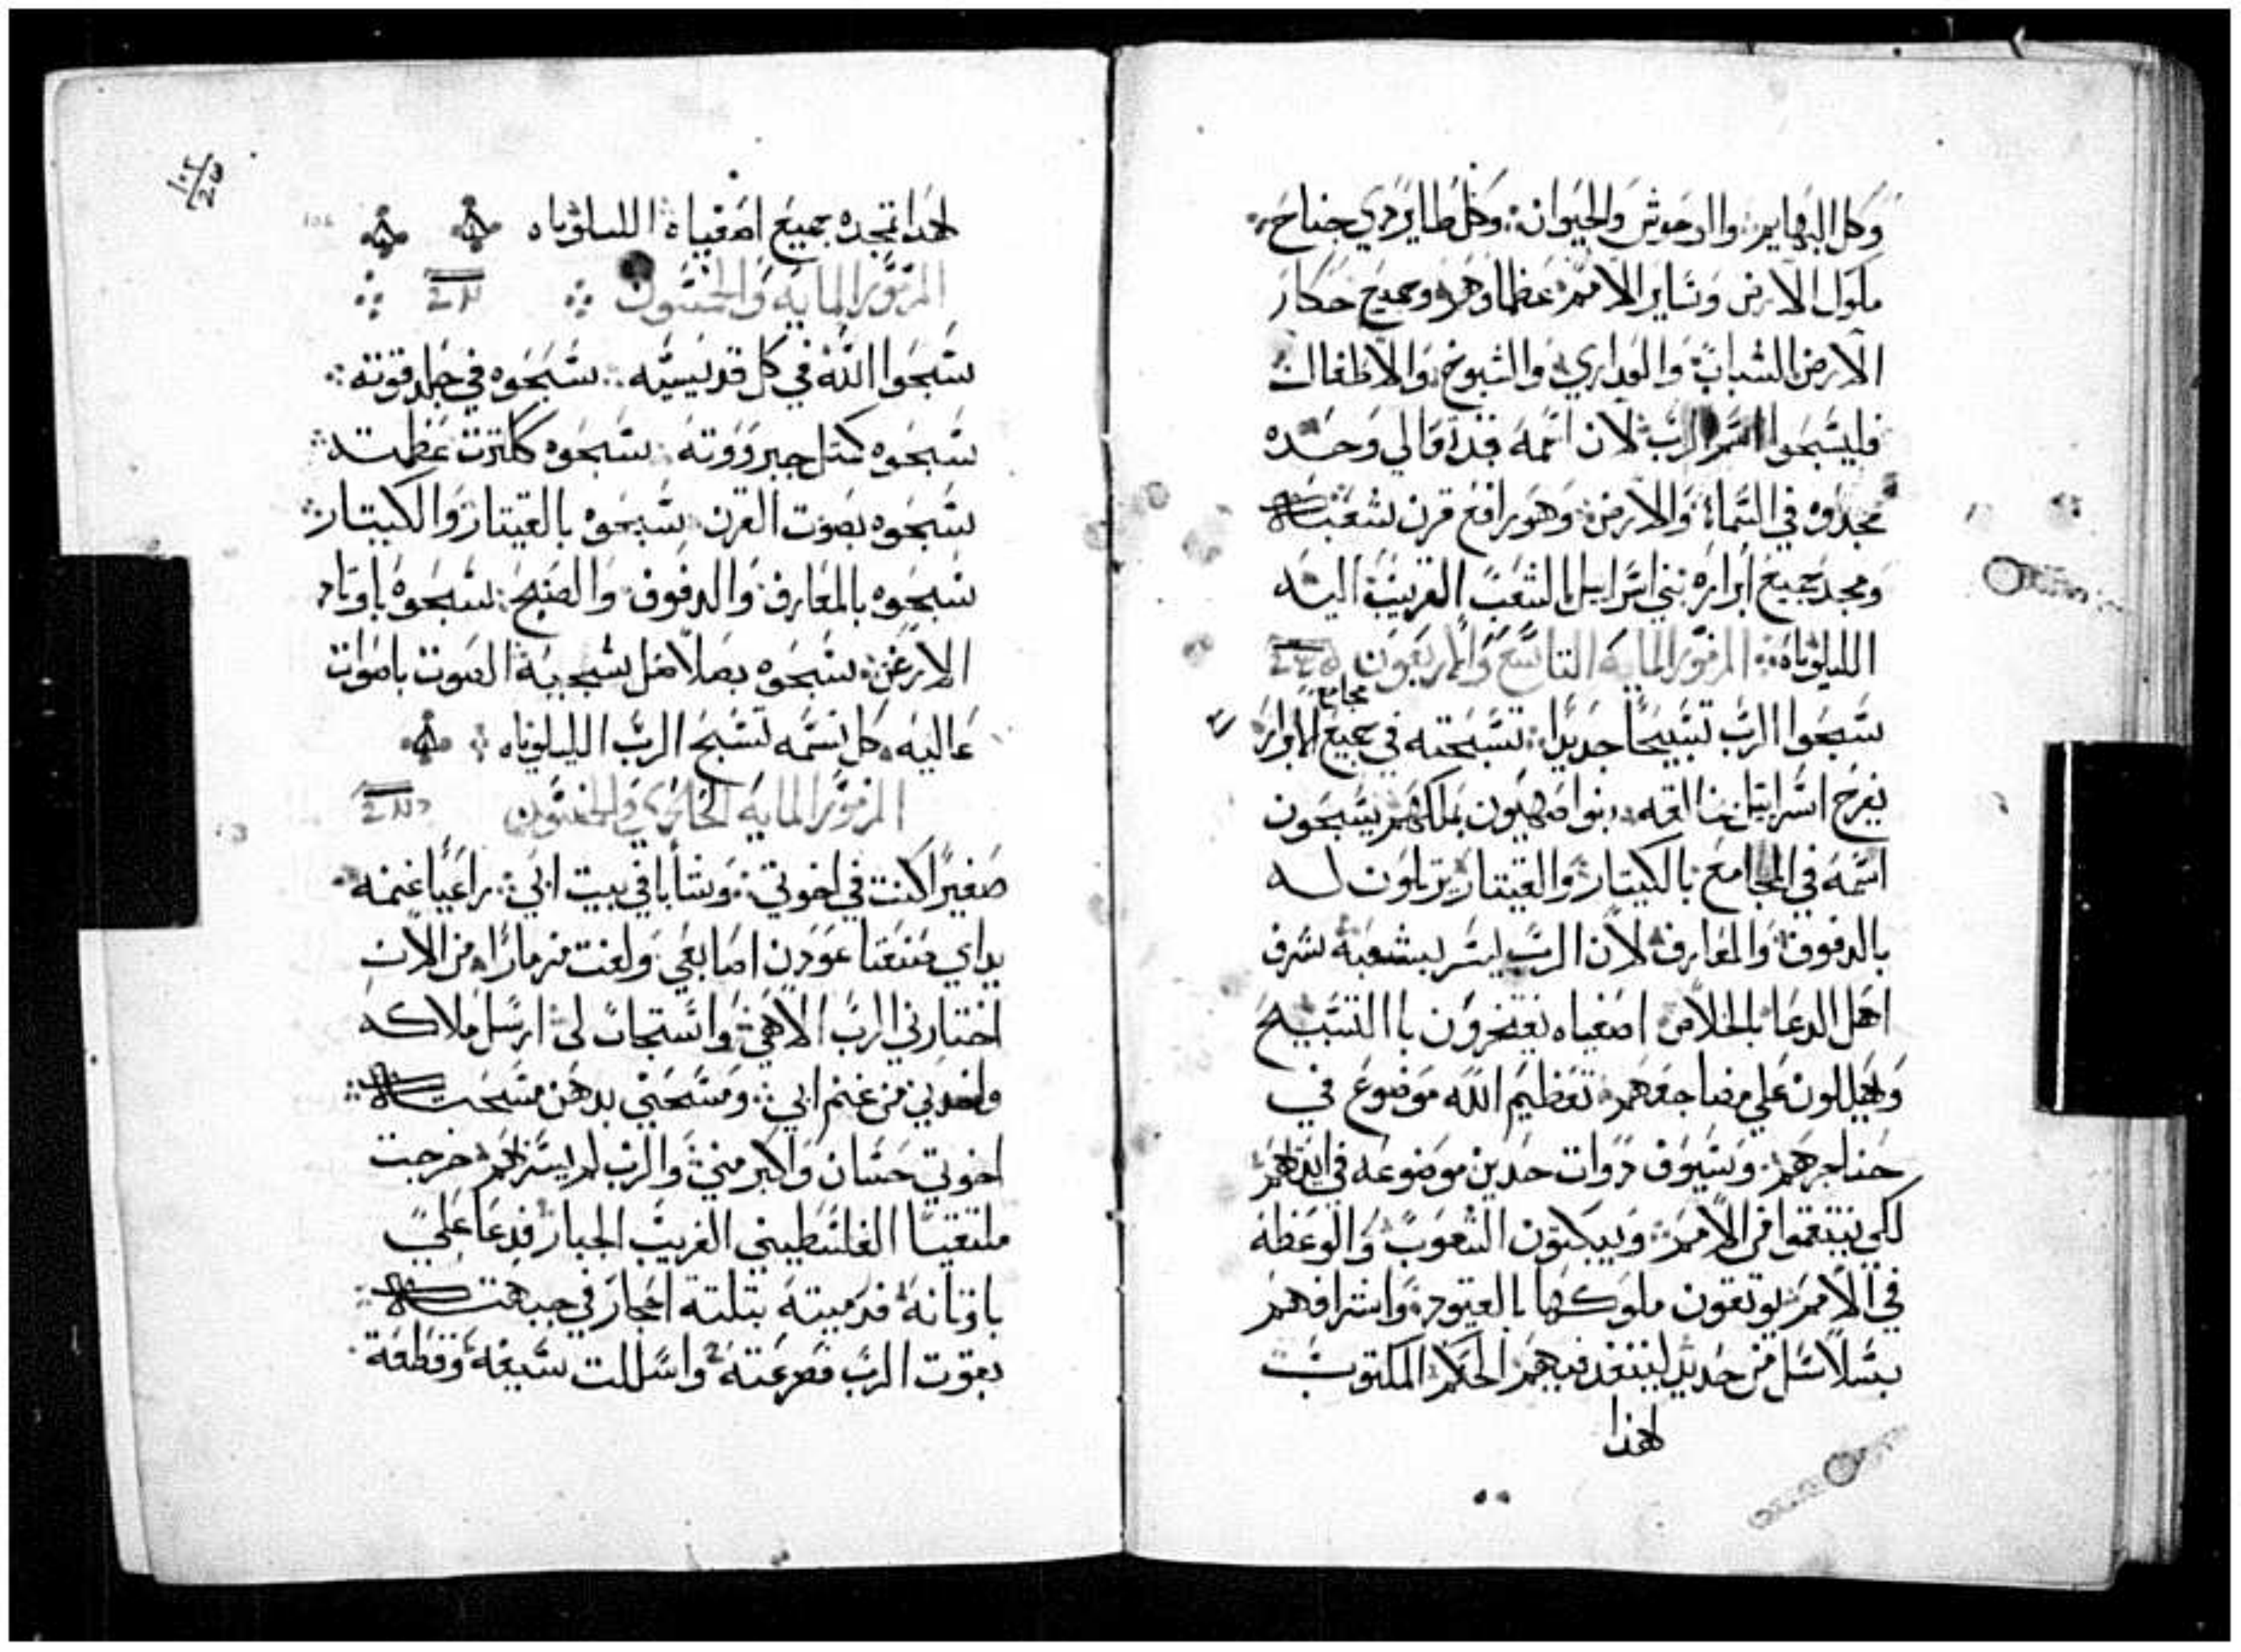 وَكل البهايم: والوحوش والحيوان: وكل طاير دي جناح:
ملوك الارض وَساير الامم: عظماوهم وجميع حكام
الارض الشباب: وَالعداري وَالشيوخ: وَالاطفال
فليسَبحوا اسم الرب: لان اسمه قد تعالي وَحده
مجدوه في السَماء: وَالارض: وَهو رافع قرن شعبه
ومجد جميع ابراره بني اسَراييل: الشعبَ القريب اليه
الليلوياه: المزمَور المايه التاسَع وَالاربعون
سَبحوا الربَّ تسَبيحاً جديدا: تسَبحته في جميع الابرار
مجامع
يفرح اسَراييل بخالقه: بنوا صهيون بملكهم يسَبحون
اسَمه في المجامع: بالكيتار وَالقيتار يرتلون له
بالدفوف وَالمعازف لان الربَّ يسَر بشعبه شرف
اهل الدعا بالخلاص اصفياه يفتخرون باالتسَبيح
وَيهللون علي مضاجعهم: تعظيم اللَه موضوع في
حناجرهم: وسَيوف دوات حدين موضوعه في ايديهم
لكي ينتقموا من الامم: وَيبكتون الشعوب وَالوعظه
في الامم يوتقون ملوكها بالقيود: وَاشرافهم
بسَلاسَل من حديد لينفد فيهم الحكم المكتوب
لهدا
لهدا تمجده جميع اصفياه: الليلوياه
المزمَور المايه وَالخمسَون
سَبحوا اللَه في كل قديسَيه: سَبحوه في جلد قوته:
سَبحوه كمتل جبرَوَوته سَبحوه ككترت عَظمته:
سَبحوه بصَوت القرن: سَبحوه بالقيتار وَالكيتار:
سَبحوه بالمعازف: وَالدفوف وَالصنج: سَبحوه باوتار
الارغن: سَبحوه بصلاصل شجية الصوت باصوات
عَاليه: كل نسَمه تسَبح الربَّ الليلوياه:
المزمَور المايه الحادي وَالخمسَون
صَغيرًا كنت في اخوتي: وَشابا في بيت ابي: راعَيًا غنمه
يداي صَنعتا عَودين: اصابعَي وَلفت مزمارًا: من الان
اختارني الربَّ الاهي: وَاسَتجاب لي: ارسَل ملاكه
واخدني من غنم ابي: وَمسَحني بدهن مسَحته:
اخوتي حسَان وَاكبر مني: وَالربَّ لم يسَر بهم: خرجت
ملتقيًا الفلسَطيني الغريب الجبار فدعَا عليَّ
باوتانه: فرميته بتلتة احجار في جبهته:
بقوت الربَّ فصرعَته: واسَللت سَيفه: وَقطعة